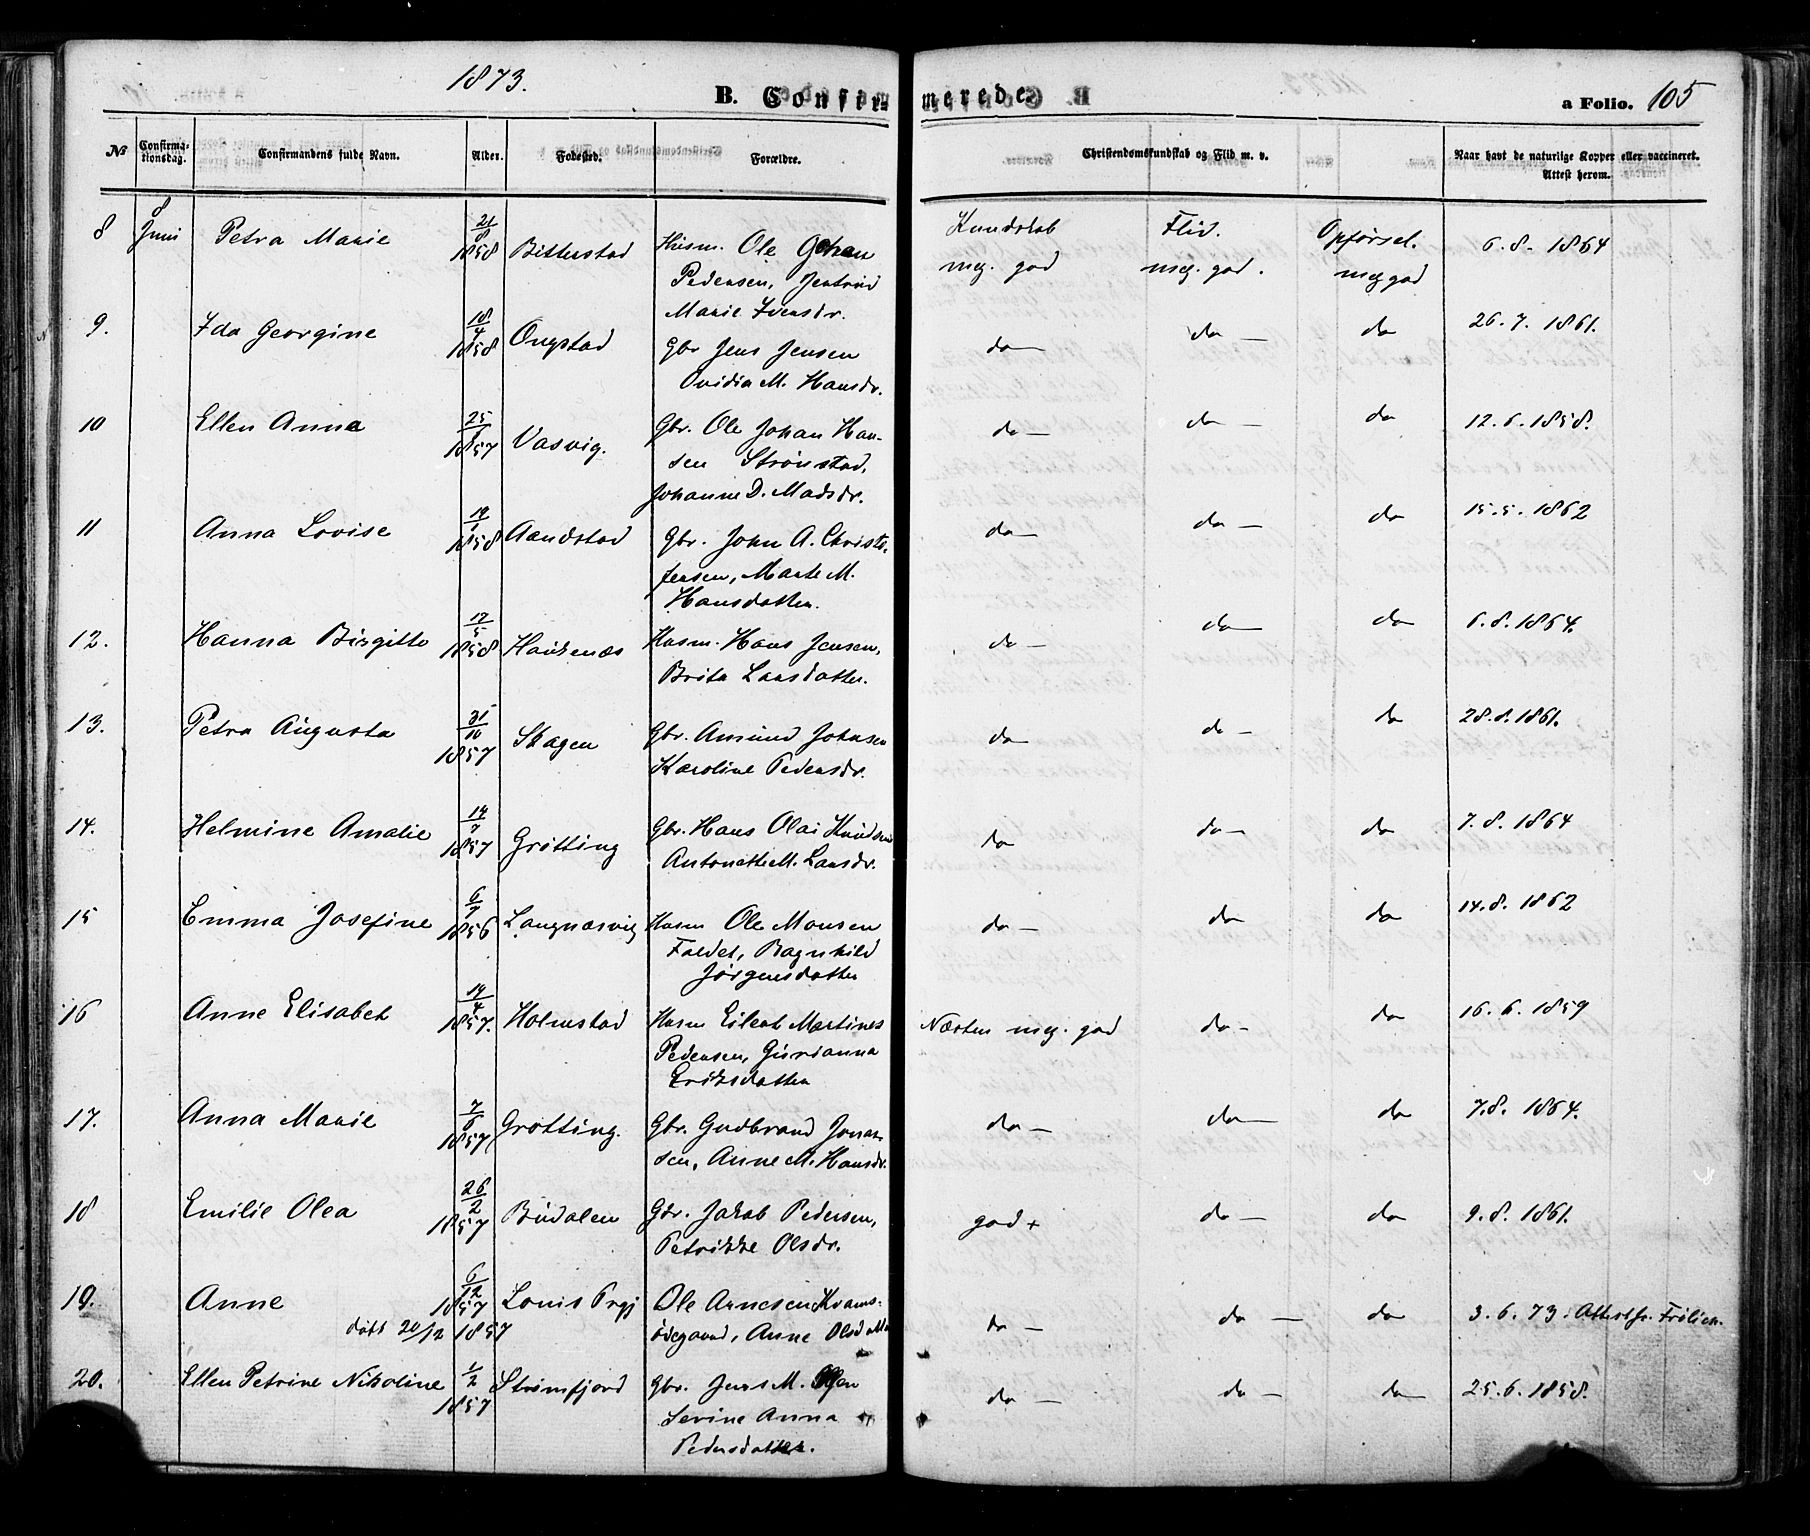 1873.
B. Confirmerede.
a Folio. 105
No Confirmationsdag. Confirmandens fulde Navn. Alder. Fødested. Forældre. Christendomskundskab og Flid m. v. Naar havt de naturlige Kopper eller vaccineret. Attest herom.
Kundskab Flid. Opførsel.
8 8 Juni Petra Marie 21/8 1858 Bitterstad Husm. Ole Johan meg. god meg. god. meg god 6.8. 1864
Pedersen, Jertrud
Marie Iversdr.
9. Ida Georgine 18/4 1858 Ongstad Gbr Jens Jensen do do do 26.7. 1861.
Ovidia M. Hansdr.
10 Ellen Anna 25/ 1857 Vasvig. Gbr. Ole Johan Han- do do do 12.6.1858.
sen Strønstad,
Johanne D. Madsdr.
11 Anna Lovise 19/1 1858 Aandstad Gbr. John A. Christo- do do do 15.5.1862
fersen, Marte M.
Hansdatter.
12. Hanna Birgitte 17/5 1858 Haukenæs Husm. Hans Jensen, do do do 6.8.1864.
Brita Larsdatter.
13. Petra Augusta 31/10 1857 Skagen Gbr. Amund Johnsen do do do 28.8.1861.
Karoline Pedersdr.
14. Helmine Amalie 14/7 1857 Grøtting Gbr. Hans Olai Knudsen do do do 7.8. 1864
Antonette M. Larsdr.
15 Emma Josefine 6/7 1856 Langnæsvig Husm Ole Monsen do do do 14.8. 1862
Faldet, Ragnhild
Jørgensdatter
16 Anne Elisabet 14/4 1857. Holmstad Husm Eilert Martines Næsten meg. god do do 16.6.1859
Pedersen, Gurianna
Eriksdatter
17. Anna Marie 7/8 1857 Grøtting. Gbr. Gudbrand Jonas- do do do 7.8. 1864.
sen, Anne M. Hansdr.
18 Emilie Olea 26/2 1857 Budalen Gbr. Jakob Pedersen, god + do do 9.8. 1861.
Petrikke Olsdr.
19. Anne 6/12 1857 Loms Prgj Ole Arnesen Kvams- do do do 3.6.73 Attest fr. Frølich.
døbt 20/12 1857 ødegaard, Anne Olsdatter
20. Ellen Petrine Nikoline 1/2 1857 Strømfjord Gbr. Jens M. Olsen do do do 25.6.1858.
Serine Anna
Pedersdatter.